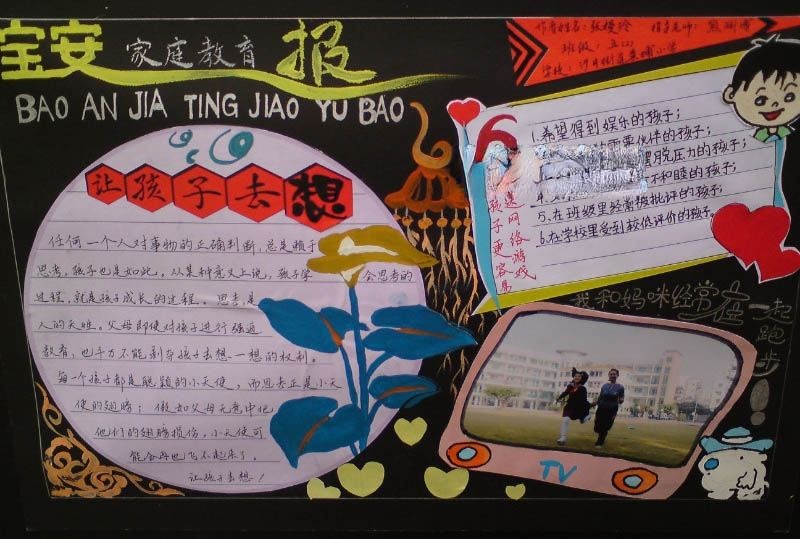 宝安 家庭教育 报
BAO AN JIA TING JIAO YU BAO
作者姓名:张
指导老师:
班级:五(2)
学校:沙井街道 小学
让孩子去想
任何一个人对事物的正确判断,总是赖于
思考,孩子也是如此。从某种意义上说,孩子学会思考的
过程,就是孩子成长的过程。思考是
人的天性。父母即使对孩子进行强迫
教育,也千万不能剥夺孩子去想一想的权利。
每一个孩子都是聪颖的小天使,而思考正是小天
使的翅膀;假如父母无意中把
他们的翅膀损伤,小天使可
能会再也飞不起来了。
让孩子去想!
6
孩子更容易
迷网络游戏
1.希望得到娱乐的孩子;
需要伙伴的孩子;
摆脱压力的孩子;
4. 不和睦的孩子;
5.在班级里经常被批评的孩子;
6.在学校里受到较低评价的孩子。
我和妈咪经常在一起
跑步!
TV